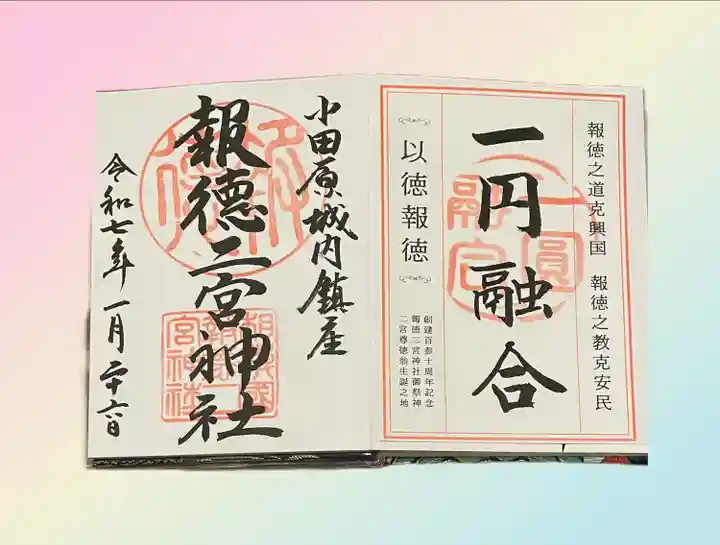 報徳之道克興国　報徳之教克安民
一円融合
一圓融合
以徳報徳
創建百参十周年記念
報徳二宮神社御祭神
二宮尊徳翁生誕之地
小田原城内鎮座
報徳二宮神社
令和七年一月二十六日